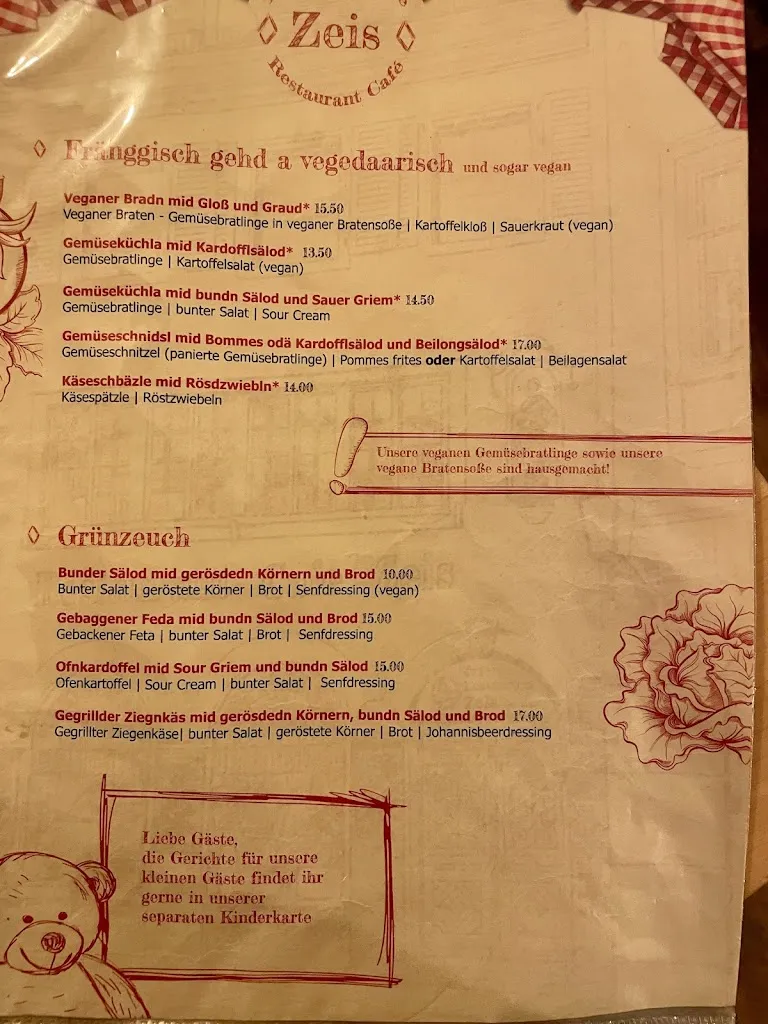 Zeis
Restaurant Café
Fränggisch gehd a vegedaarisch und sogar vegan
Veganer Bradn mid Gloß und Graud* 15.50
Veganer Braten - Gemüsebratlinge in veganer Bratensoße | Kartoffelkloß | Sauerkraut (vegan)
Gemüseküchla mid Kardofflsälod* 13.50
Gemüsebratlinge | Kartoffelsalat (vegan)
Gemüseküchla mid bundn Sälod und Sauer Griem* 14.50
Gemüsebratlinge | bunter Salat | Sour Cream
Gemüseschnidsl mid Bommes odä Kardofflsälod und Beilongsälod* 17.00
Gemüseschnitzel (panierte Gemüsebratlinge) | Pommes frites oder Kartoffelsalat | Beilagensalat
Käseschbäzle mid Rösdzwiebln* 14.00
Käsespätzle | Röstzwiebeln
Unsere veganen Gemüsebratlinge sowie unsere
vegane Bratensoße sind hausgemacht!
Grünzeuch
Bunder Sälod mid gerösdedn Körnern und Brod 10.00
Bunter Salat | geröstete Körner | Brot | Senfdressing (vegan)
Gebaggener Feda mid bundn Sälod und Brod 15.00
Gebackener Feta | bunter Salat | Brot | Senfdressing
Ofnkardoffel mid Sour Griem und bundn Sälod 15.00
Ofenkartoffel | Sour Cream | bunter Salat | Senfdressing
Gegrillder Ziegnkäs mid gerösdedn Körnern, bundn Sälod und Brod 17.00
Gegrillter Ziegenkäse| bunter Salat | geröstete Körner | Brot | Johannisbeerdressing
Liebe Gäste,
die Gerichte für unsere
kleinen Gäste findet ihr
gerne in unserer
separaten Kinderkarte